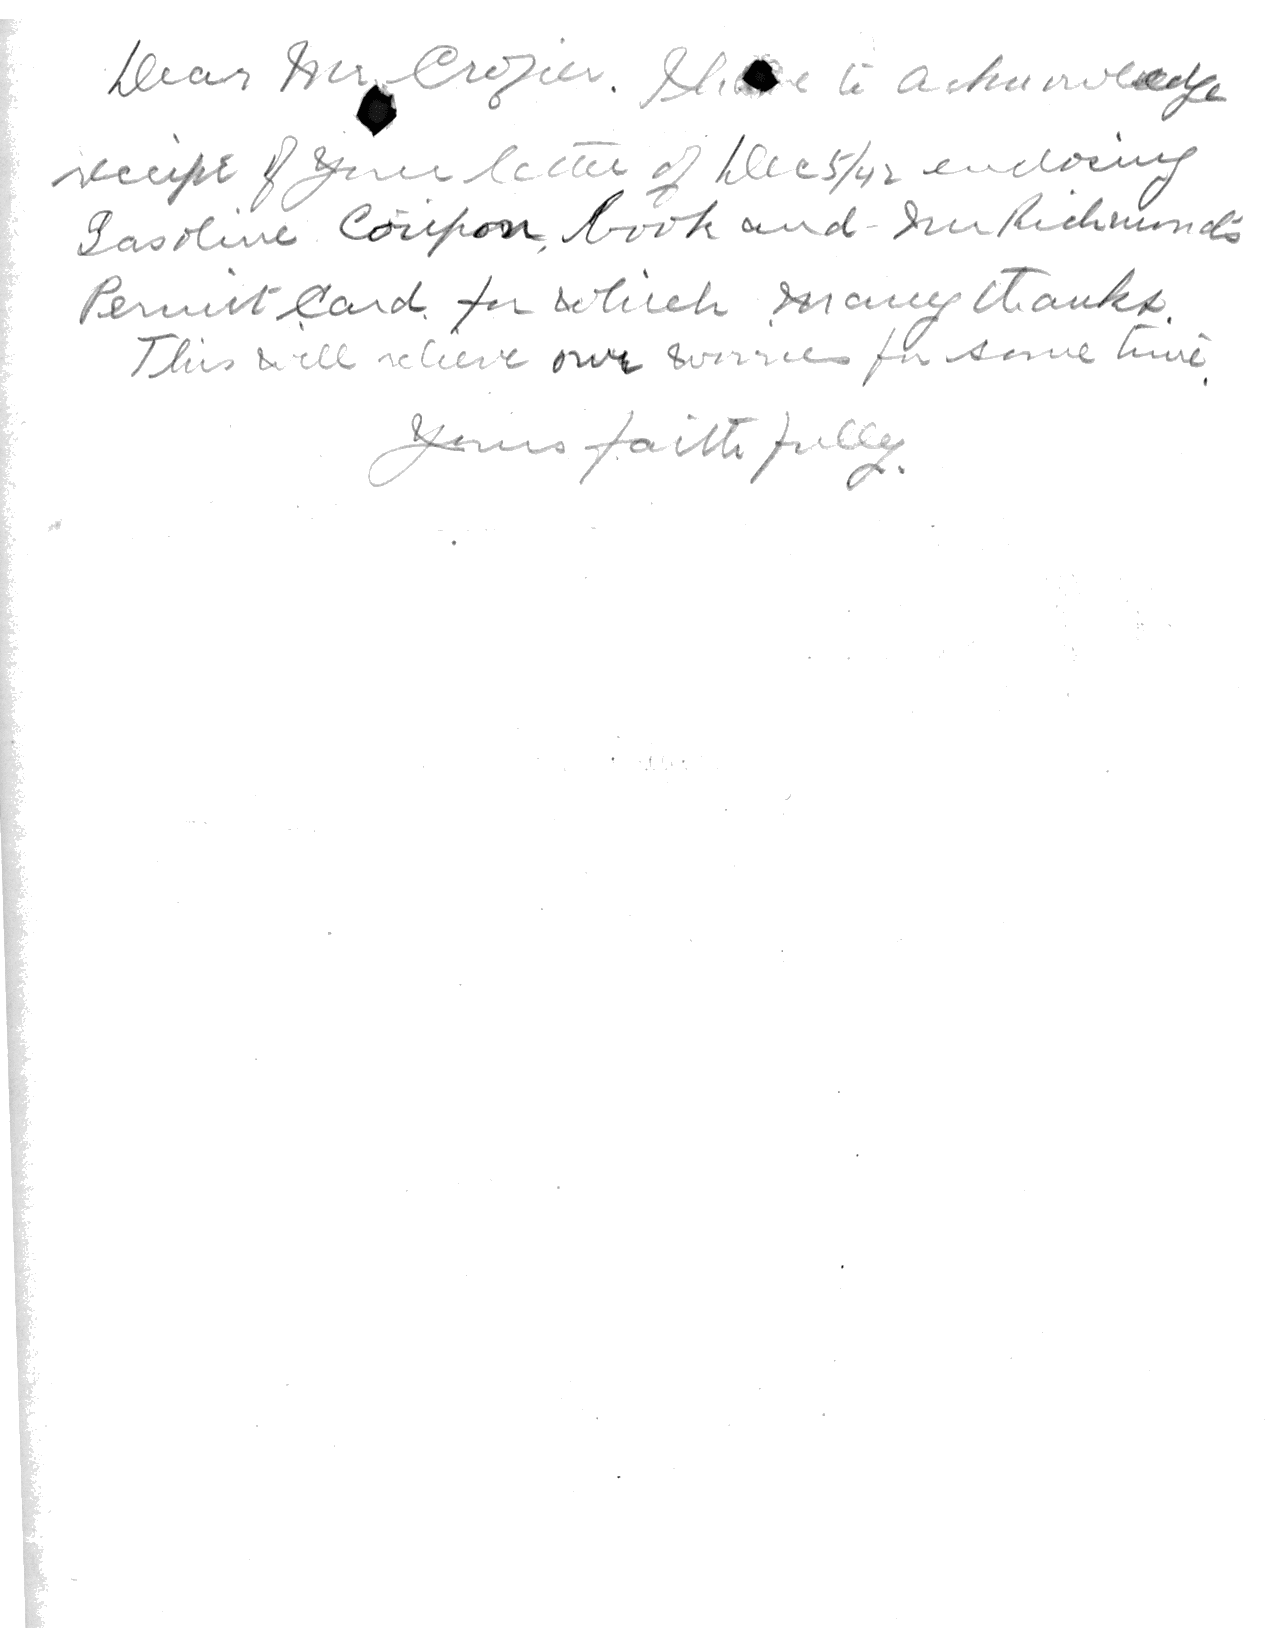 Dear Mr. Crozier. I have to acknowledge
recipt of your letter of Dec 5/42 enclosing
Gasoline Coupon, book and Mr Richmond's
Permit Card. for which many thanks.
This will relieve our worries for some time.
Yours faithfully.